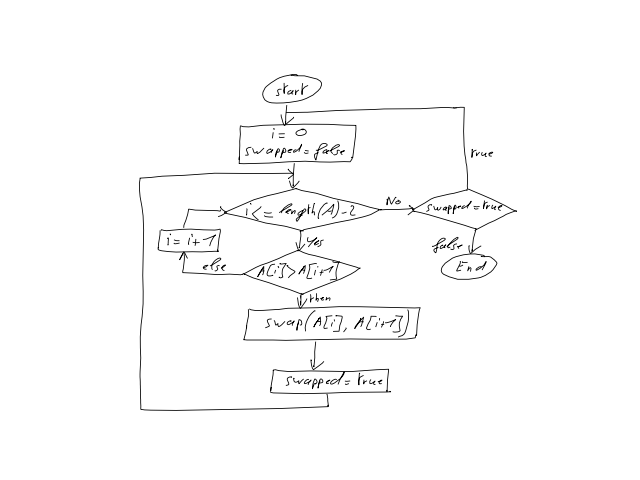 start
i = 0
swapped = false
true
i <= length(A)-2
No
swapped = true
Yes
i = i+1
false
else
A[i] > A[i+1]
End
then
swap(A[i], A[i+1])
swapped = true